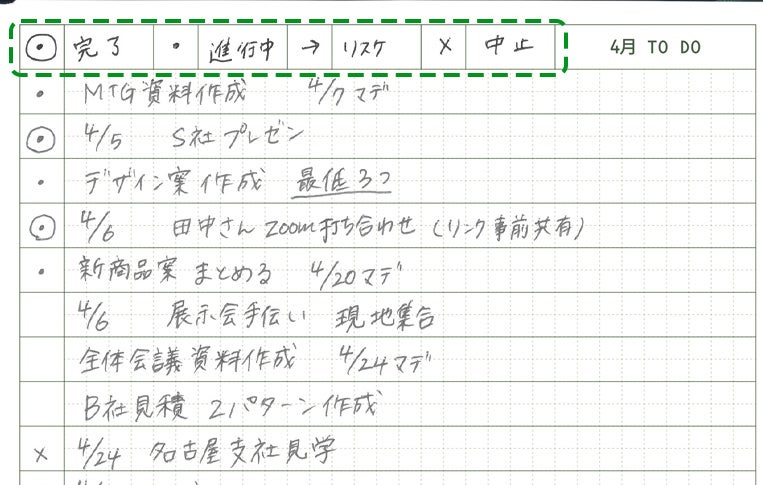 ⦿ 完了 ・ 進行中 → リスケ × 中止 4月 TO DO
・ MTG資料作成 4/7マデ
⦿ 4/5 S社プレゼン
・ デザイン案作成 最低3つ
⦿ 4/6 田中さん zoom打ち合わせ (リンク事前共有)
・ 新商品案 まとめる 4/20マデ
4/6 展示会手伝い 現地集合
全体会議資料作成 4/24マデ
B社見積 2パターン作成
× 4/24 名古屋支社見学